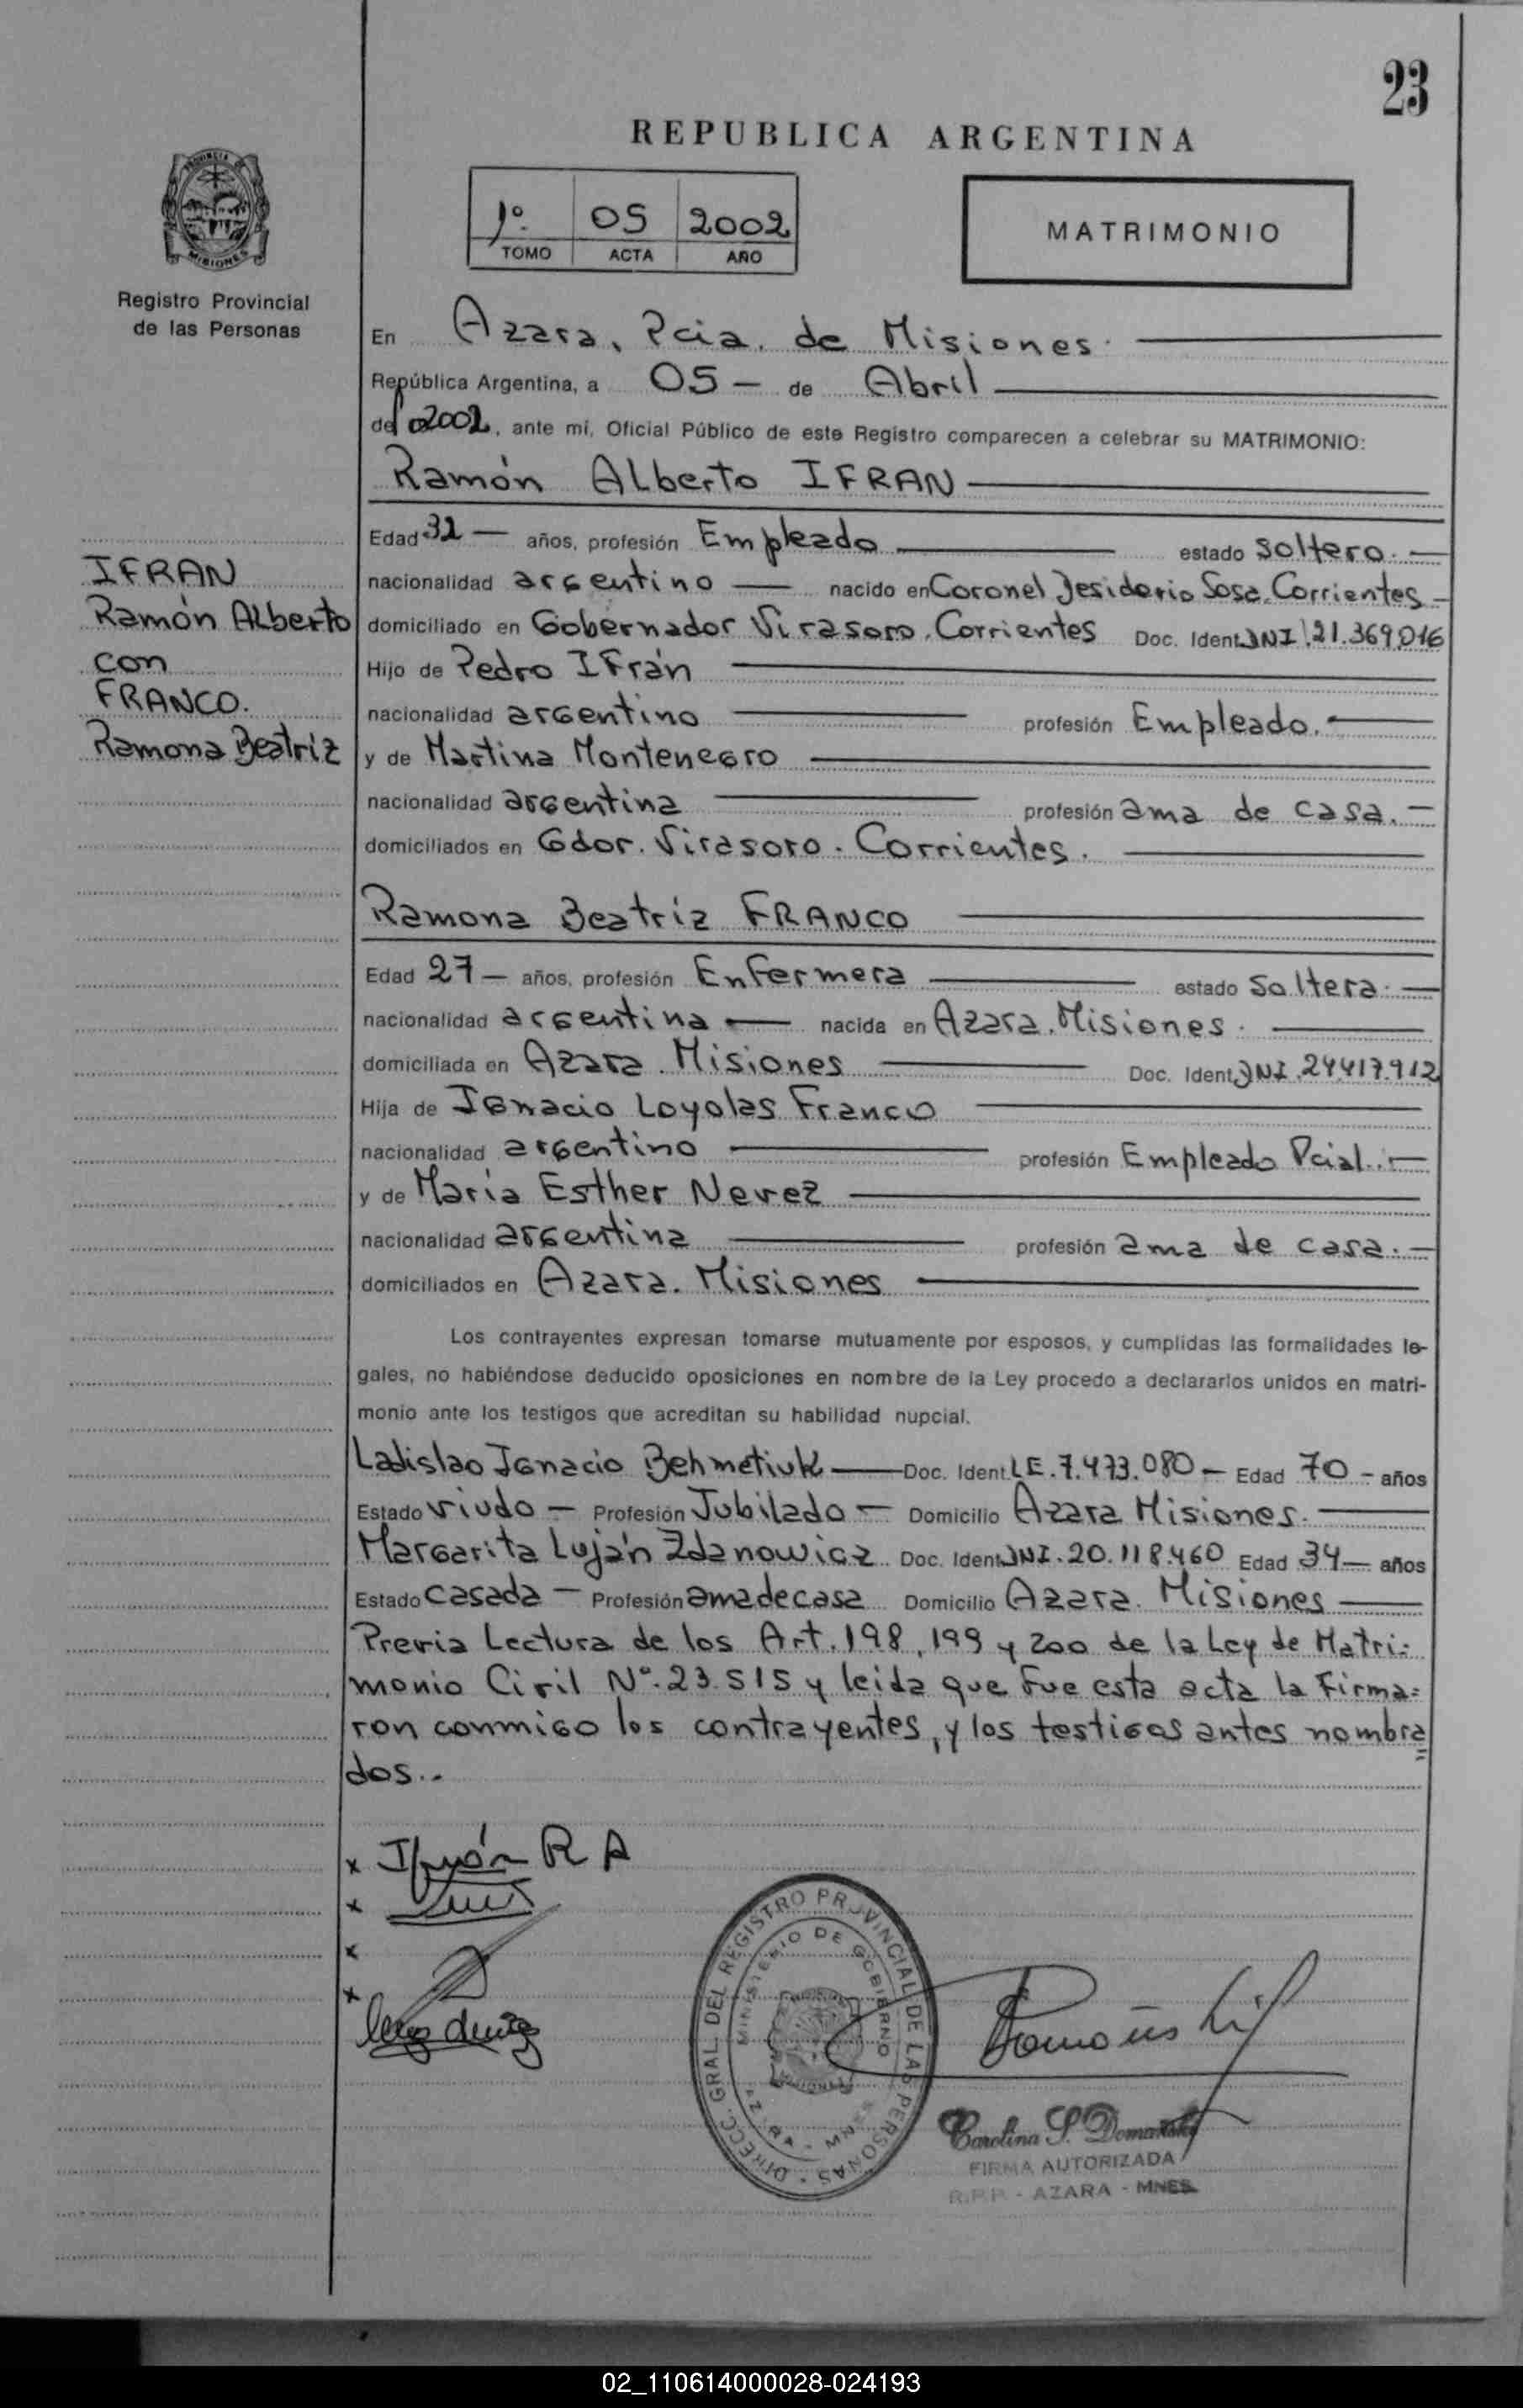 23
REPUBLICA ARGENTINA
1º 05 2002
TOMO ACTA AÑO
MATRIMONIO
PROVINCIA DE
MISIONES
Registro Provincial
de las Personas
En Azara, Pcia. de Misiones.
República Argentina, a 05 — de Abril
del 2002, ante mí, Oficial Público de este Registro comparecen a celebrar su MATRIMONIO:
Ramón Alberto IFRAN
Edad 32 — años, profesión Empleado estado soltero.
nacionalidad argentino — nacido en Coronel Desiderio Sosa, Corrientes
domiciliado en Gobernador Virasoro, Corrientes Doc. Ident. DNI 21.369.016
Hijo de Pedro IFrán
nacionalidad argentino profesión Empleado.
y de Martina Montenegro
nacionalidad argentina profesión ama de casa.
domiciliados en Gdor. Virasoro. Corrientes.
IFRAN
Ramón Alberto
con
FRANCO.
Ramona Beatriz
Ramona Beatriz FRANCO
Edad 27 — años, profesión Enfermera estado Soltera.
nacionalidad argentina — nacida en Azara, Misiones.
domiciliada en Azara. Misiones Doc. Ident. DNI. 24.417.912
Hija de Ignacio Loyolas Franco
nacionalidad argentino profesión Empleado Pcial.
y de María Esther Nevez
nacionalidad argentina profesión ama de casa.
domiciliados en Azara. Misiones
Los contrayentes expresan tomarse mutuamente por esposos, y cumplidas las formalidades le-
gales, no habiéndose deducido oposiciones en nombre de la Ley procedo a declararlos unidos en matri-
monio ante los testigos que acreditan su habilidad nupcial.
Ladislao Ignacio Behmetiuk — Doc. Ident. L.E. 7.473.080 — Edad 70 - años
Estado viudo — Profesión Jubilado — Domicilio Azara Misiones.
Margarita Luján Zdanowicz Doc. Ident. DNI. 20.118.460 Edad 34 — años
Estado casada — Profesión ama de casa Domicilio Azara. Misiones
Previa Lectura de los Art. 198, 199 y 200 de la Ley de Matri-
monio Civil Nº. 23.515 y leida que fue esta acta la Firma=
ron conmigo los contrayentes, y los testigos antes nombra=
dos..
x Ifrán R A
x
x
x
DIRECC. GRAL. DEL REGISTRO PROVINCIAL DE LAS PERSONAS
MINISTERIO DE GOBIERNO
AZARA - MNES
Carolina S. Domanski
FIRMA AUTORIZADA
R.P.P. - AZARA - MNES
02_110614000028-024193